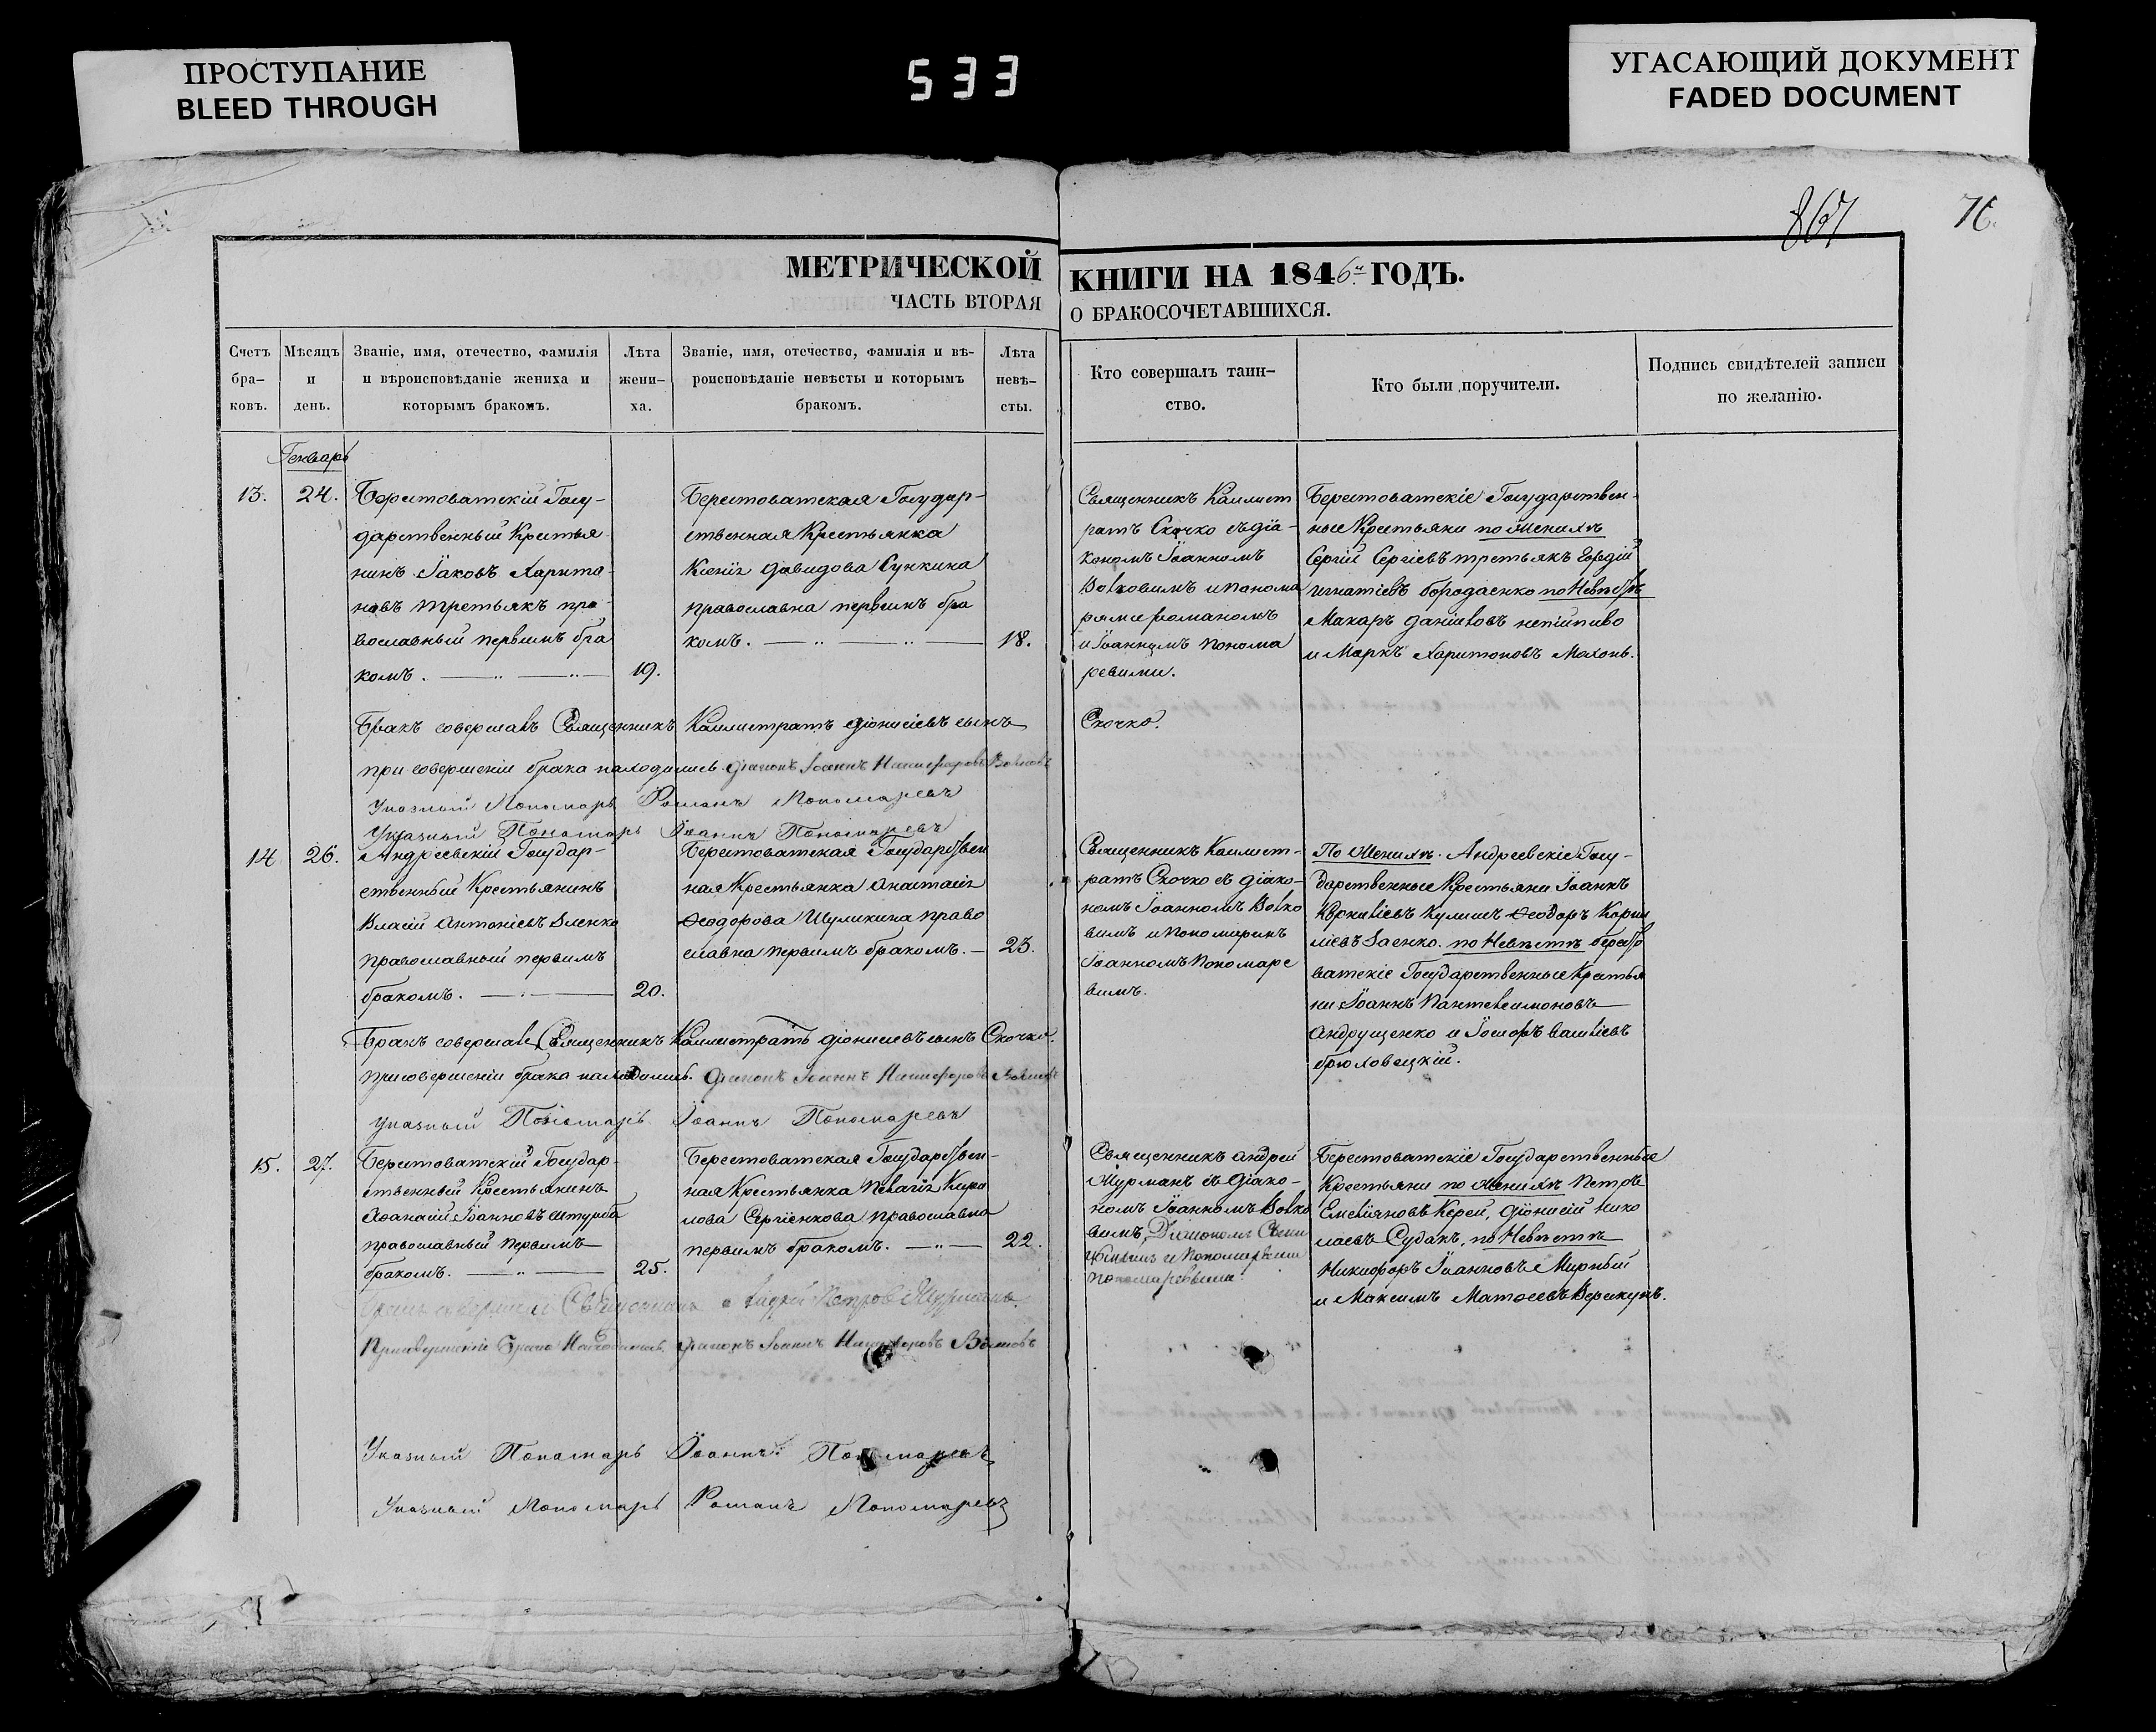 ПРОСТУПАНИЕ
BLEED THROUGH
533
УГАСАЮЩИЙ ДОКУМЕНТ
FADED DOCUMENT
867
76.
МЕТРИЧЕСКОЙ
ЧАСТЬ ВТОРАЯ
КНИГИ НА 1846й ГОДЪ.
О БРАКОСОЧЕТАВШИХСЯ.
Счетъ
бра-
ковъ.
Мѣсяцъ
и
день.
Званіе, имя, отечество, фамилія
и вѣроисповѣданіе жениха и
которымъ бракомъ.
Лѣта
жени-
ха.
Званіе, имя, отечество, фамилія и вѣ-
роисповѣданіе невѣсты и которымъ
бракомъ.
Лѣта
невѣ-
сты.
Кто совершалъ таин-
ство.
Кто были поручители.
Подпись свидѣтелей записи
по желанію.
Генварь
13.
24.
Берестоватскій Госу-
дарственный Крестья
нинъ Іаковъ Харито
новъ Третьякъ пра-
вославный первымъ бра
комъ.
19.
Берестоватская Государ-
ственная Крестьянка
Ксенія Давидова
православна первымъ бра
комъ.
18.
Священникъ Каллист
ратъ Скочко съ діа-
кономъ Іоанномъ
Волковымъ и понома
рями Романомъ
и Іоанномъ Понома
ревыми.
Берестоватскіе Государствен-
ные Крестьяни по женихѣ
Сергій Сергіевъ Третьякъ
Игнатіевъ Бородаенко по Невѣстѣ
Макаръ Даніиловъ непійпиво
и Маркъ Харитоновъ Махонь.
Бракъ совершалъ Священникъ Каллистратъ Діонисіевъ сынъ
Скочко.
при совершеніи брака находились. Діаконъ Іоаннъ Никифоровъ Волковъ
Указный Пономарь Романъ Пономаревъ
Указный Пономарь Іоаннъ Пономаревъ
14
26.
Андреевскій Государ-
ственный Крестьянинъ
Власій Антоніевъ
православный первымъ
бракомъ.
20.
Берестоватская Государствен
ная Крестьянка Анастасія
Ѳеодорова Шуликина право
славна первымъ бракомъ.
23.
Священникъ Каллист-
ратъ Скочко съ діако-
номъ Іоанномъ Волко
вымъ и пономаремъ
Іоанномъ Пономаре
вымъ.
По Женихѣ. Андреевскіе Госу-
дарственные Крестьяни Іоаннъ
Корниліевъ Кулишъ Ѳеодоръ Корни
ліевъ Заенко. по Невѣстѣ Бересто
ватскіе Государственные Крестья
ни Іоаннъ Пантелеимоновъ
Андрущенко и Іосифъ Василіевъ
Брюховецкій.
Бракъ совершалъ Священникъ Каллистратъ Діонисіевъ сынъ Скочко.
При совершеніи брака находились. Діаконъ Іоаннъ Никифоровъ Волковъ
Указный Пономарь Іоаннъ Пономаревъ
15.
27.
Берестоватскій Государ-
ственный Крестьянинъ
Аѳанасій Іоанновъ Штурба
православный первымъ
бракомъ.
25.
Берестоватская Государствен-
ная Крестьянка Пелагія Кири
лова Сергіенкова православна
первымъ бракомъ.
22.
Священникъ Андрей
Мурманъ съ діако-
номъ Іоанномъ Волко
вымъ,
и Пономарями
Пономаревыми.
Берестоватскіе Государственные
Крестьяни по Женихѣ Петръ
Емеліяновъ Керей, Діонисій Нико
лаевъ Судакъ, по Невѣстѣ
Никифоръ Іоанновъ Мирный
и Максимъ Матѳеевъ Верикунъ.
Бракъ совершилъ Священникъ Андрей Петровъ Мурманъ.
При совершеніи брака находились. Діаконъ Іоаннъ Никифоровъ Волковъ
Указный Пономарь Іоаннъ Пономаревъ
Указный Пономарь Романъ Пономаревъ